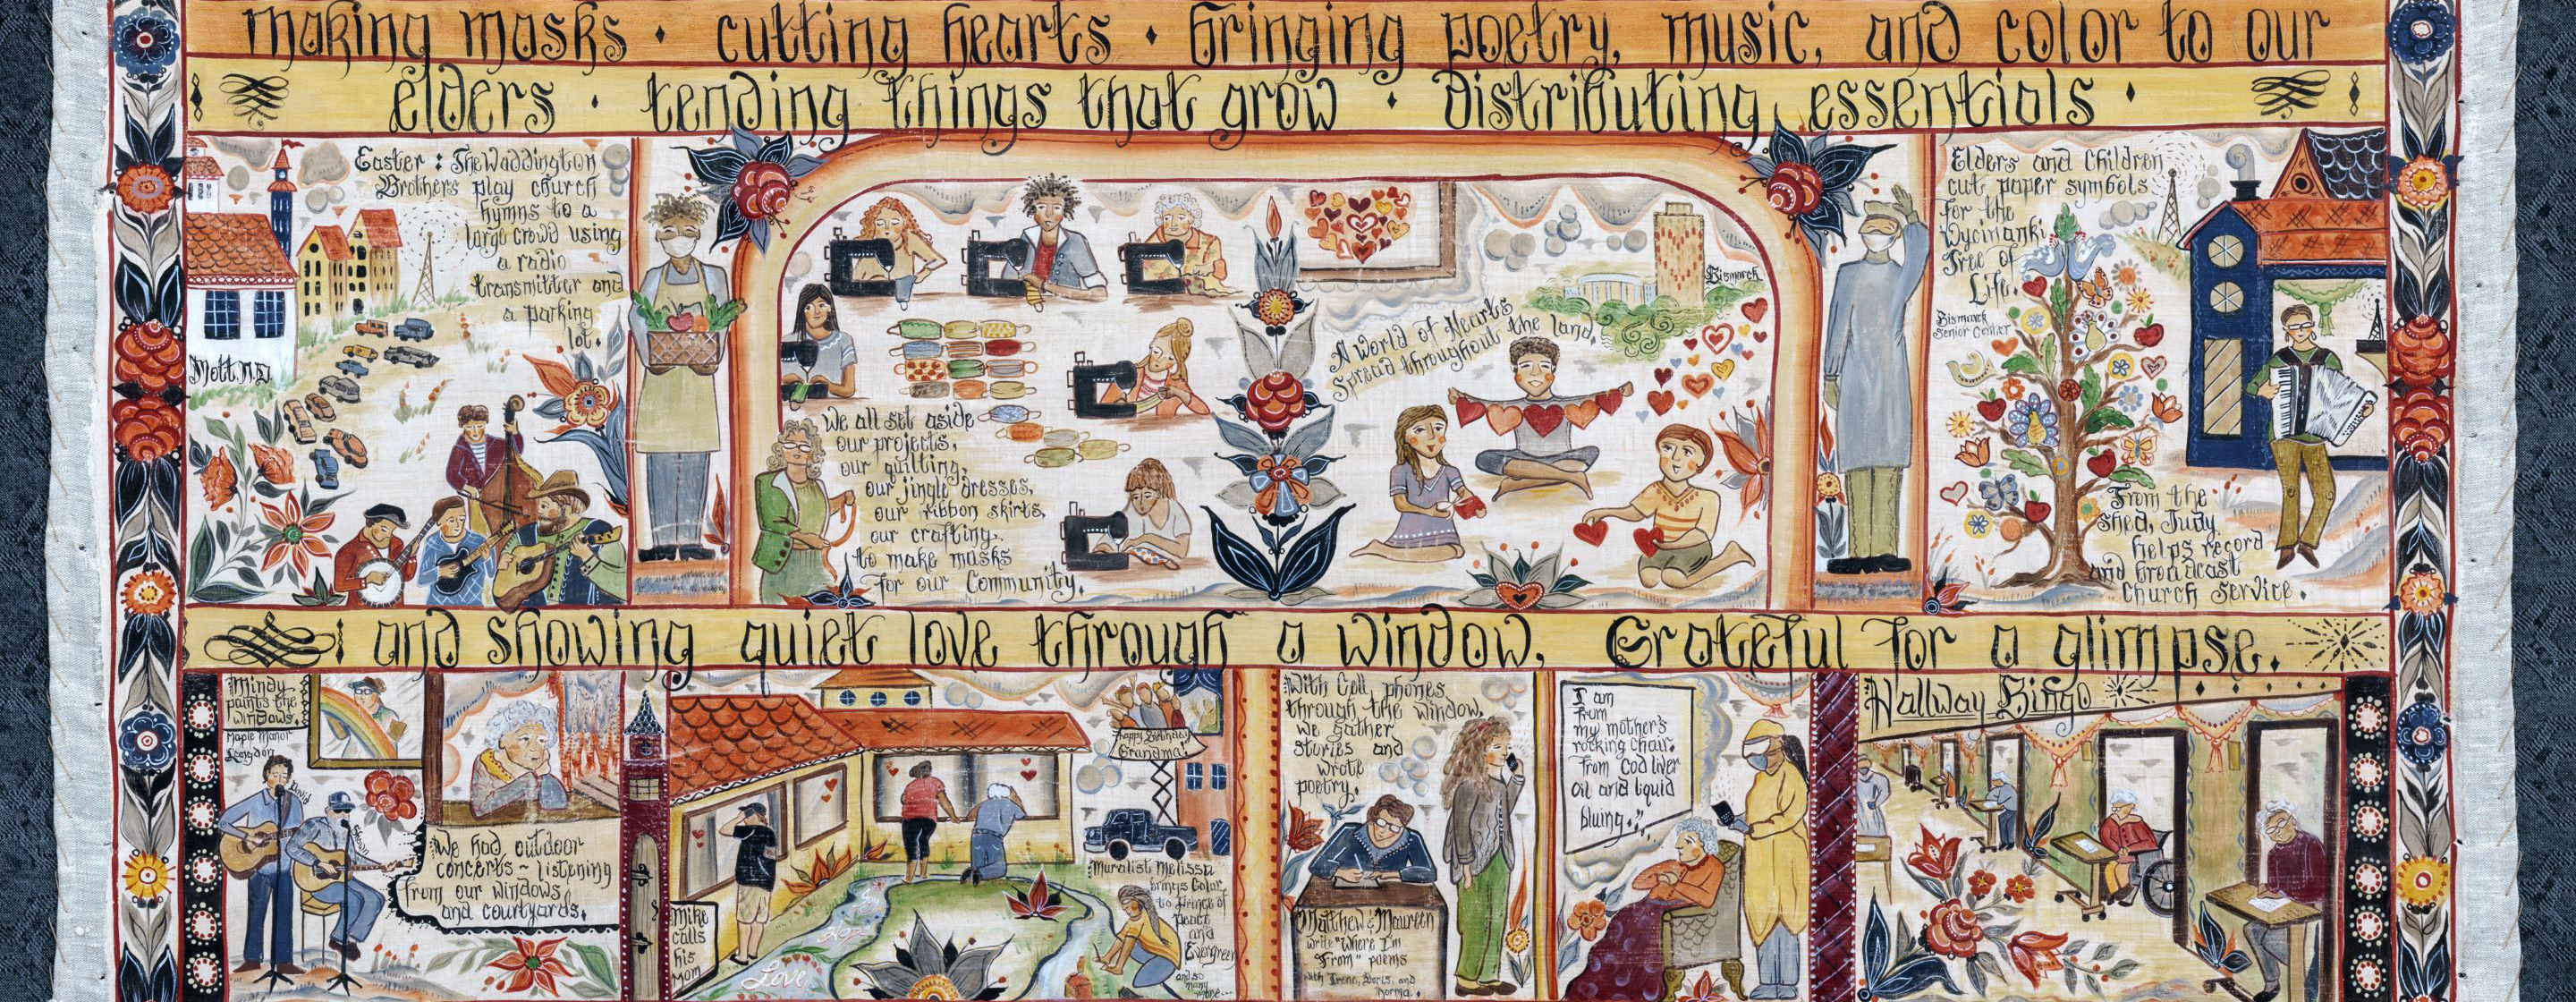 making masks · cutting hearts · bringing poetry, music, and color to our
elders · tending things that grow · distributing essentials ·
Easter: The Waddington
Brothers play church
hymns to a
large crowd using
a radio
transmitter and
a parking
lot.
Mott ND
We all set aside
our projects,
our quilting,
our jingle dresses,
our ribbon skirts,
our crafting,
to make masks
for our Community.
A world of Hearts
Spread throughout the land.
Bismarck
Elders and Children
cut paper symbols
for the
Wycinanki
Tree of
Life.
Bismarck
Senior Center
From the
shed, Judy
helps record
and broadcast
Church Service.
and showing quiet love through a window. Grateful for a glimpse.
Mindy
paints the
windows.
Maple Manor
Langdon
David
We had outdoor
concerts ~ listening
from our windows
and courtyards.
Mike
calls
his
Mom
Hope
Love
Happy Birthday
Grandma!
Muralist Melissa
brings Color
to Prince of
Peace
and
Evergreen
and so
many
more...
With Cell phones
through the window,
we gather
stories and
wrote
poetry.
Matthew & Maureen
write "Where I'm
From" poems
with Irene, Doris, and
Norma.
I am
from
my mother's
rocking chair.
From Cod liver
oil and liquid
bluing."
Hallway Bingo